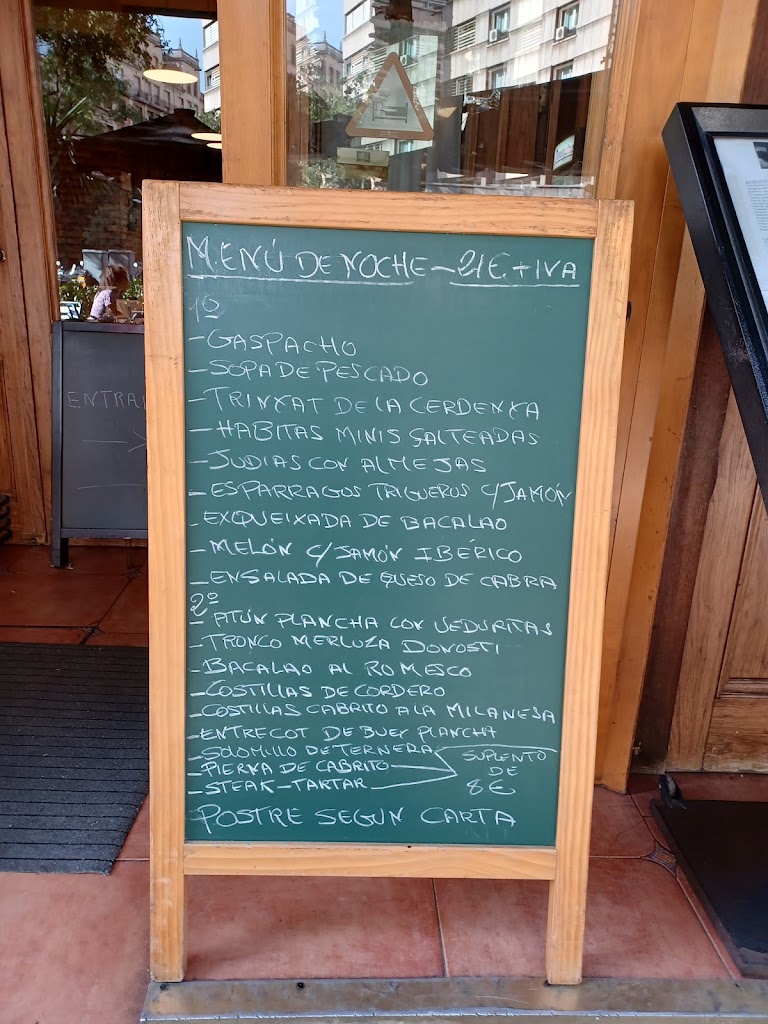 MENÚ DE NOCHE - 21€ + IVA
1º
- GASPACHO
- SOPA DE PESCADO
- TRINXAT DE LA CERDENYA
- HABITAS MINIS SALTEADAS
- JUDIAS CON ALMEJAS
- ESPARRAGOS TRIGUEROS C/JAMÓN
- EXQUEIXADA DE BACALAO
- MELÓN C/JAMÓN IBÉRICO
- ENSALADA DE QUESO DE CABRA
2º
- ATÚN PLANCHA CON VEDURITAS
- TRONCO MERLUZA DONOSTI
- BACALAO AL ROMESCO
- COSTILLAS DE CORDERO
- COSTILLAS CABRITO A LA MILANESA
- ENTRECOT DE BUEY PLANCHA
- SOLOMILLO DE TERNERA
- PIERNA DE CABRITO
- STEAK-TARTAR
SUPLENTO
DE
8€
POSTRE SEGUN CARTA
ENTRA